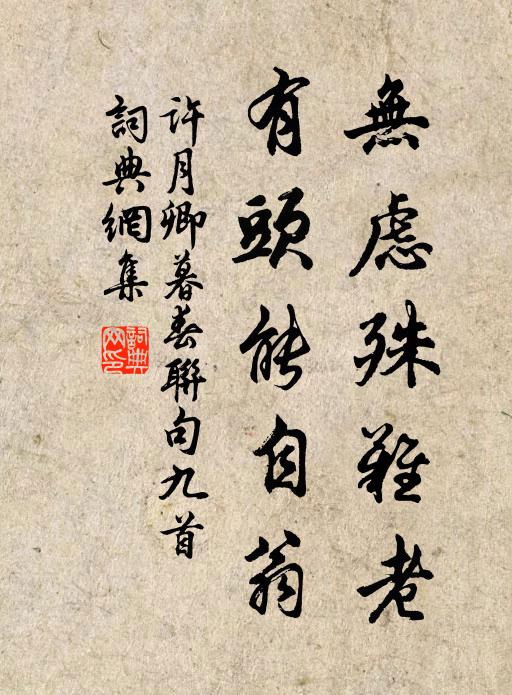 無慮殊難老
有頭能自翁
許月卿暮春聯句九首
詞典網集
詞典
网印